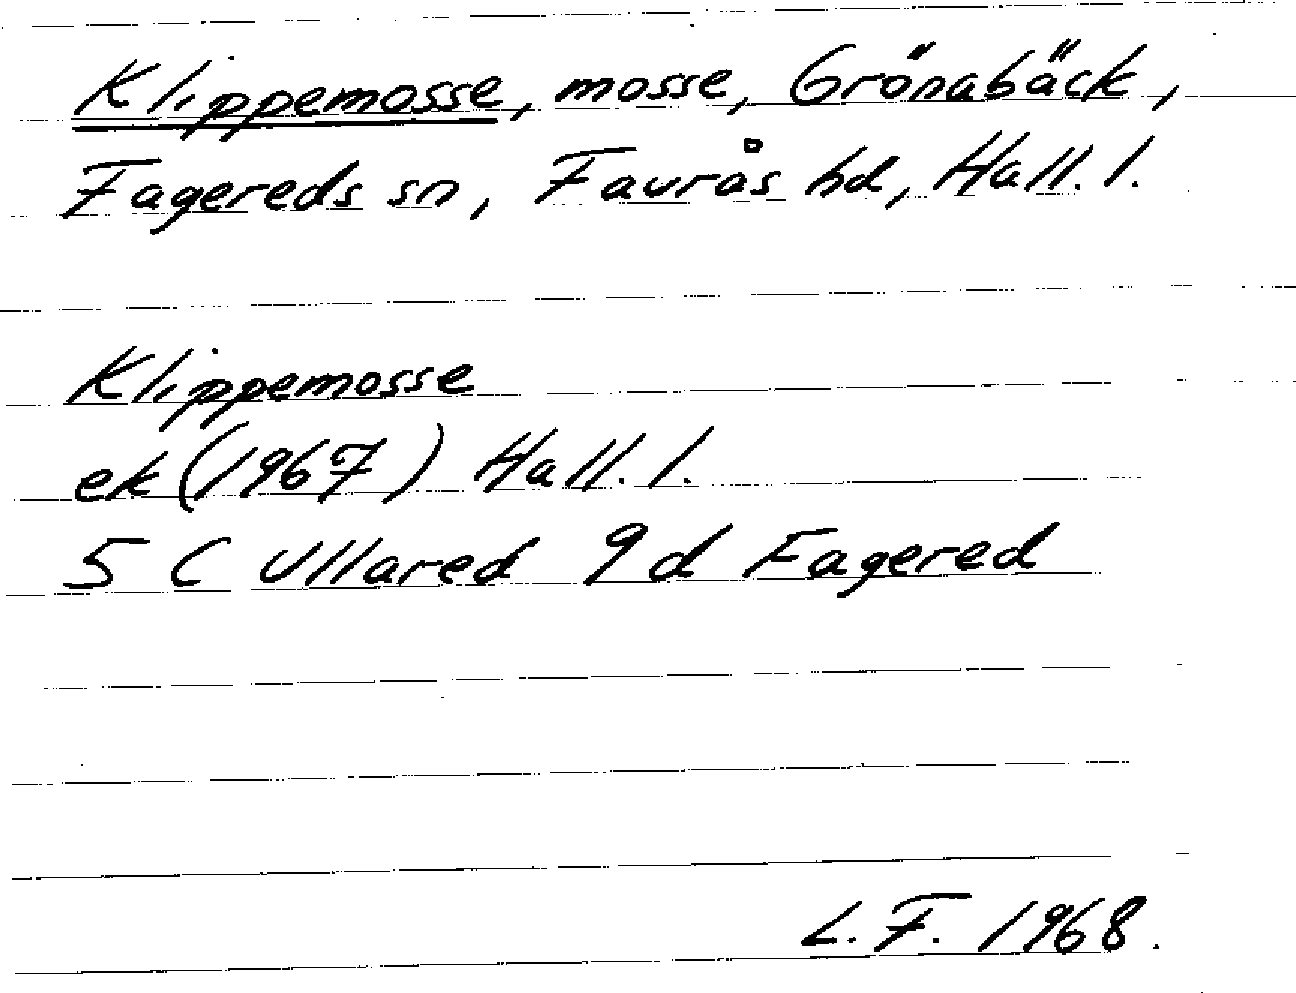 Klippemosse, mosse, Grönabäck,
Fagereds sn, Faurås hd, Hall. l.
Klippemosse
ek (1967) Hall. l.
5 C Ullared 9 d Fagered
L. F. 1968.